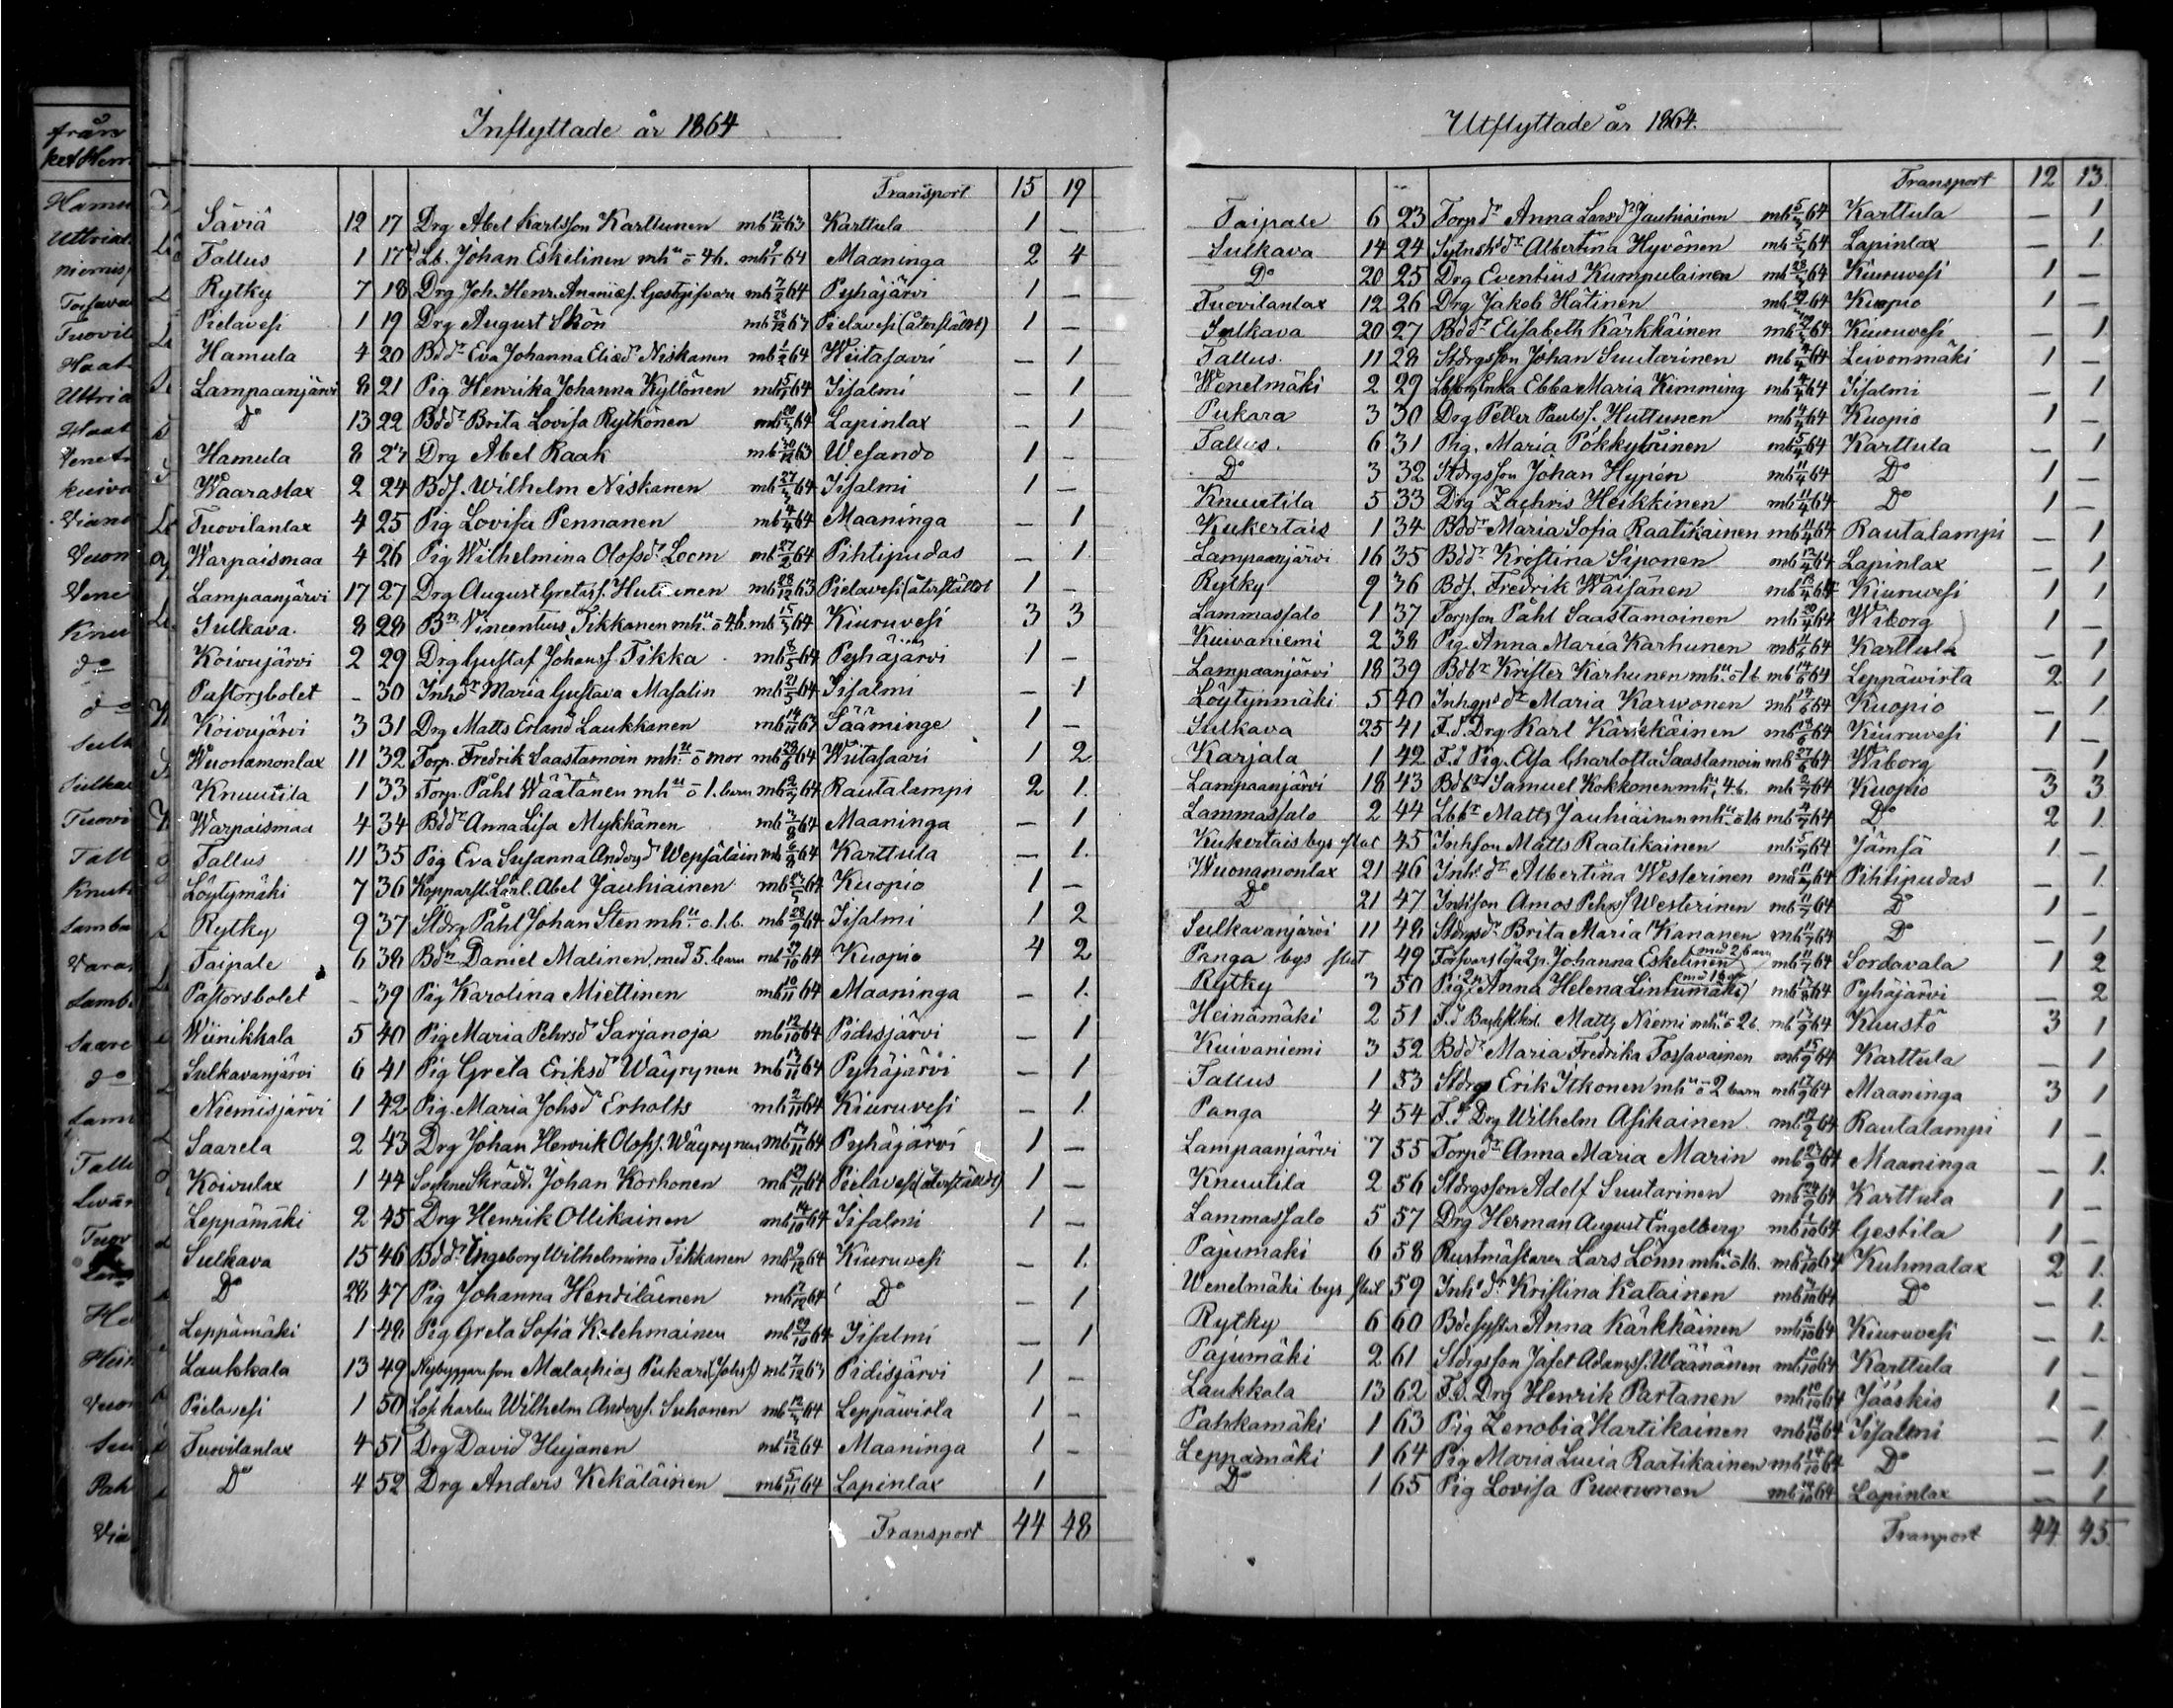 Inflyttade år 1864
Transport 15 19
Säviä 12 17 Drg Abel Karlsson Karttunen mb 12/11 63 Karttula 1 —
Tallus 1 17 2) Lb. Johan Eskelinen mhu o 4 b. mb 64 Maaninga 2 4
Rytky 7 18 Drg Joh. Henr. Gästgifvare mb 7/2 64 Pyhäjärvi 1 —
Pielavesi 1 19 Drg August Skön mb 28/12 63 Pielavesi (återställdt) 1 —
Hamula 4 20 Bddr Eva Johanna Niskanen mb 1/2 64 Witasaari — 1
Lampaanjärvi 8 21 Pig Henrika Johanna Kyllönen mb 64 Jisalmi — 1
Do 13 22 Bddr Brita Lovisa Rytkönen mb 64 Lapinlax — 1
Hamula 8 23 Drg Abel Raak mb 63 Wesando 1 —
Waaraslax 2 24 Bdf. Wilhelm Niskanen mb 64 Jisalmi 1 —
Tuovilanlax 4 25 Pig Lovisa Pennanen mb 4/4 64 Maaninga — 1
Warpaismaa 4 26 Pig Wilhelmina Olofsdr Loom mb 27/2 64 Pihtipudas — 1
Lampaanjärvi 17 27 Drg August Gretasf. mb 28/12 63 Pielavesi (återställdt 1 —
Sulkava 8 28 Bn Vincentius Tikkanen mhu o 4 b. mb 64 Kiuruvesi 3 3
Koivujärvi 2 29 Drg Gustaf Johansf. Tikka mb 8/5 64 Pyhäjärvi 1 —
Pastorsbolet — 30 Inhdr Maria Gustava Masalin mb 21/5 64 Jisalmi — 1
Koivujärvi 3 31 Drg Matts Erland Laukkanen mb 14/11 63 Sääminge 1 —
Wuonamonlax 11 32 Torp. Fredrik Saastamoin mhu o mor mb 64 Witasaari 1 2
Knuutila 1 33 Torp. Påhl Wäätänen mhu o 1. barn mb 64 Rautalampi 2 1.
Warpaismaa 4 34 Bddr Anna Lisa Mykkänen mb 64 Maaninga — 1
Tallus 11 35 Pig Eva Susanna Andersdr Wepsäläin mb 64 Karttula — 1.
Löytymäki 7 36 Kopparsl. Lärl. Abel Jauhiainen mb 64 Kuopio 1 —
Rytky 9 37 Stdrg Påhl Johan Sten mhu o 1. b. mb 28/9 64 Jisalmi 1 2
Taipale 6 38 Bdn Daniel Malinen med 5. barn mb 64 Kuopio 4 2
Pastorsbolet — 39 Pig Karolina Miettinen mb 10/11 64 Maaninga — 1.
Wiinikkala 5 40 Pig Maria Pehrsdr Sarjanoja mb 12/10 64 Pidisjärvi — 1
Sulkavanjärvi 6 41 Pig Greta Eriksdr Wäyrynen mb 13/11 64 Pyhäjärvi — 1
Niemisjärvi 1 42 Pig. Maria Johsdr Erholts mb 2/11 64 Kiuruvesi — 1
Saarela 2 43 Drg Johan Henrik Olofsf. Wäyrynen mb 13/11 64 Pyhäjärvi 1 —
Koivulax 1 44 Johan Korhonen mb 64 Pielavesi (återställdt) 1 —
Leppämäki 2 45 Drg Henrik Ollikainen mb 14/10 64 Jisalmi 1 —
Sulkava 15 46 Bddr Ingeborg Wilhelmina Tikkanen mb 64 Kiuruvesi — 1.
Do 28 47 Pig Johanna Hendiläinen mb 64 Do — 1
Leppämäki 1 48 Pig Greta Sofia Kolehmainen mb 64 Jisalmi — 1
Laukkala 13 49 Nybyggareson Malachias Pukari (Johsf) mb 7/12 63 Pidisjärvi 1 —
Pielavesi 1 50 Wilhelm Andersf. Suhonen mb 64 Leppävirta 1 —
Tuovilanlax 4 51 Drg David Hujanen mb 12/12 64 Maaninga 1 —
Do 4 52 Drg Anders Kekäläinen mb 5/11 64 Lapinlax 1
Transport 44 48
Utflyttade år 1864.
Transport 12 13.
Taipale 6 23 Torpdr Anna Larsdr Jauhiainen mb 64 Karttula — 1
Sulkava 14 24 Albertina Hyvönen mb 64 Lapinlax — 1.
Do 20 25 Drg Eventius Kumpulainen mb 64 Kiuruvesi 1 —
Tuovilanlax 12 26 Drg Jakob Hätinen mb 64 Kuopio 1 —
Sulkava 20 27 Bddr Elisabeth Kärkkäinen mb 64 Kiuruvesi — 1
Tallus. 11 28 Stdrgsson Johan Suutarinen mb 64 Leivonmäki 1 —
Wenelmäki 2 29 Enka Ebba Maria Kimming mb 64 Jisalmi — 1
Pukara 3 30 Drg Petter Paulsf. Huttunen mb 4/4 64 Kuopio 1 —
Tallus. 6 31 Pig. Maria Pökkyläinen mb 5/4 64 Karttula — 1
Do 3 32 Stdrgsson Johan Hypén mb 11/4 64 Do 1 —
Knuutila 5 33 Drg Zachris Heikkinen mb 11/4 64 Do 1 —
Kukertais 1 34 Bddr Maria Sofia Raatikainen mb 11/4 64 Rautalampi — 1
Lampaanjärvi 16 35 Bddr Kristina Siponen mb 12/4 64 Lapinlax — 1
Rytky 9 36 Bdf. Fredrik Wäisänen mb 64 Kiuruvesi 1 1
Lammassalo 1 37 Torpson Påhl Saastamoinen mb 64 Wiborg 1 —
Kuivaniemi 2 38 Pig. Anna Maria Karhunen mb 64 Karttula — 1
Lampaanjärvi 18 39 Bdbr Krister Karhunen mhu o 1 b mb 64 Leppävirta 2 1
Löytynmäki 5 40 Inhgsdr Maria Karvonen mb 14/6 64 Kuopio — 1.
Sulkava 25 41 F.d. Drg Karl Kärkkäinen mb 64 Kiuruvesi 1 —
Karjala 1 42 F.d Pig. Asa Charlotta Saastamoin mb 27/6 64 Wiborg — 1
Lampaanjärvi 18 43 Bdbr Samuel Kokkonen mhu, 4 b. mb 64 Kuopio 3 3
Lammassalo 2 44 Lbbr Matts Jauhiainen mhu o 1 b mb 64 Do 2 1.
Kukertais bys slut 45 Inhson Matts Raatikainen mb 64 Jämsä 1 —
Wuonamonlax 21 46 Inhsdr Albertina Westerinen mb 64 Pihtipudas — 1.
Do 21 47 Inhson Amos Pehrsf Westerinen mb 11/7 64 Do 1 —
Sulkavanjärvi 11 48 Stdrgsdr Brita Maria Kananen mb 11/7 64 Do — 1
Panga bys slut 49 Johanna Eskelinen med 2 barn mb 11/7 64 Sordavala 1 2
Rytky 3 50 Pig. Anna Helena Lintumäki mb 64 Pyhäjärvi — 2
Heinämäki 2 51 F.d Matts Niemi mhu o 2 b. mb 64 Kuustö 3 1
Kuivaniemi 3 52 Bddr Maria Fredrika Tossavainen mb 15/9 64 Karttula — 1
Tallus 1 53 Stdrg Erik Itkonen mhu o 2 barn mb 17/9 64 Maaninga 3 1
Panga 4 54 F.d Drg Wilhelm Asikainen mb 64 Rautalampi 1 —
Lampaanjärvi 7 55 Torpdr Anna Maria Marin mb 64 Maaninga — 1.
Knuutila 2 56 Stdrgsson Adolf Suutarinen mb 24/9 64 Karttula 1 —
Lammassalo 5 57 Drg Herman August Engelberg mb 1/10 64 Gestila 1 —
Pajumäki 6 58 Rustmästaren Lars Lönn mhu o 1 b. mb 64 Kuhmalax 2 1.
Wenelmäki bys slut 59 Inhsdr Kristina Katainen mb 64 Do — 1.
Rytky 6 60 Bdesyster Anna Kärkkäinen mb 6/10 64 Kiuruvesi — 1.
Pajumäki 2 61 Stdrgsson Jafet Adamsf. Wäänänen mb 10/10 64 Karttula 1 —
Laukkala 13 62 F.d. Drg Henrik Partanen mb 10/10 64 Jääskis 1 —
Pahkamäki 1 63 Pig Zenobia Hartikainen mb 64 Jisalmi — 1
Leppämäki 1 64 Pig Maria Lucia Raatikainen mb 14/10 64 Do — 1.
Do 1 65 Pig Lovisa Puurunen mb 64 Lapinlax — 1
Transport 44 45.